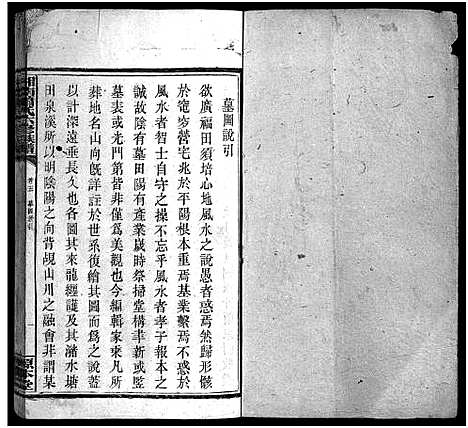 墓圖說引
欲廣福田須培心地風水之說愚者惑焉然歸形骸
於窀穸營宅兆於平陽根本重焉基業繫焉不惑乎
風水者智士自守之操不忘乎風水者孝子報本之
誠故陰有墓田陽有產業歲時祭掃堂構聿新或豎
墓表或光門第皆非僅爲美觀也今編輯家乘凡所
葬地名山向旣詳註於世系復繪其圖而爲之說蓋
以計深遠垂長久也各圖其來龍纏護及其瀦水塘
田泉溪所以明陰陽之向背覘山川之融會非謂某
卷五 墓圖說引